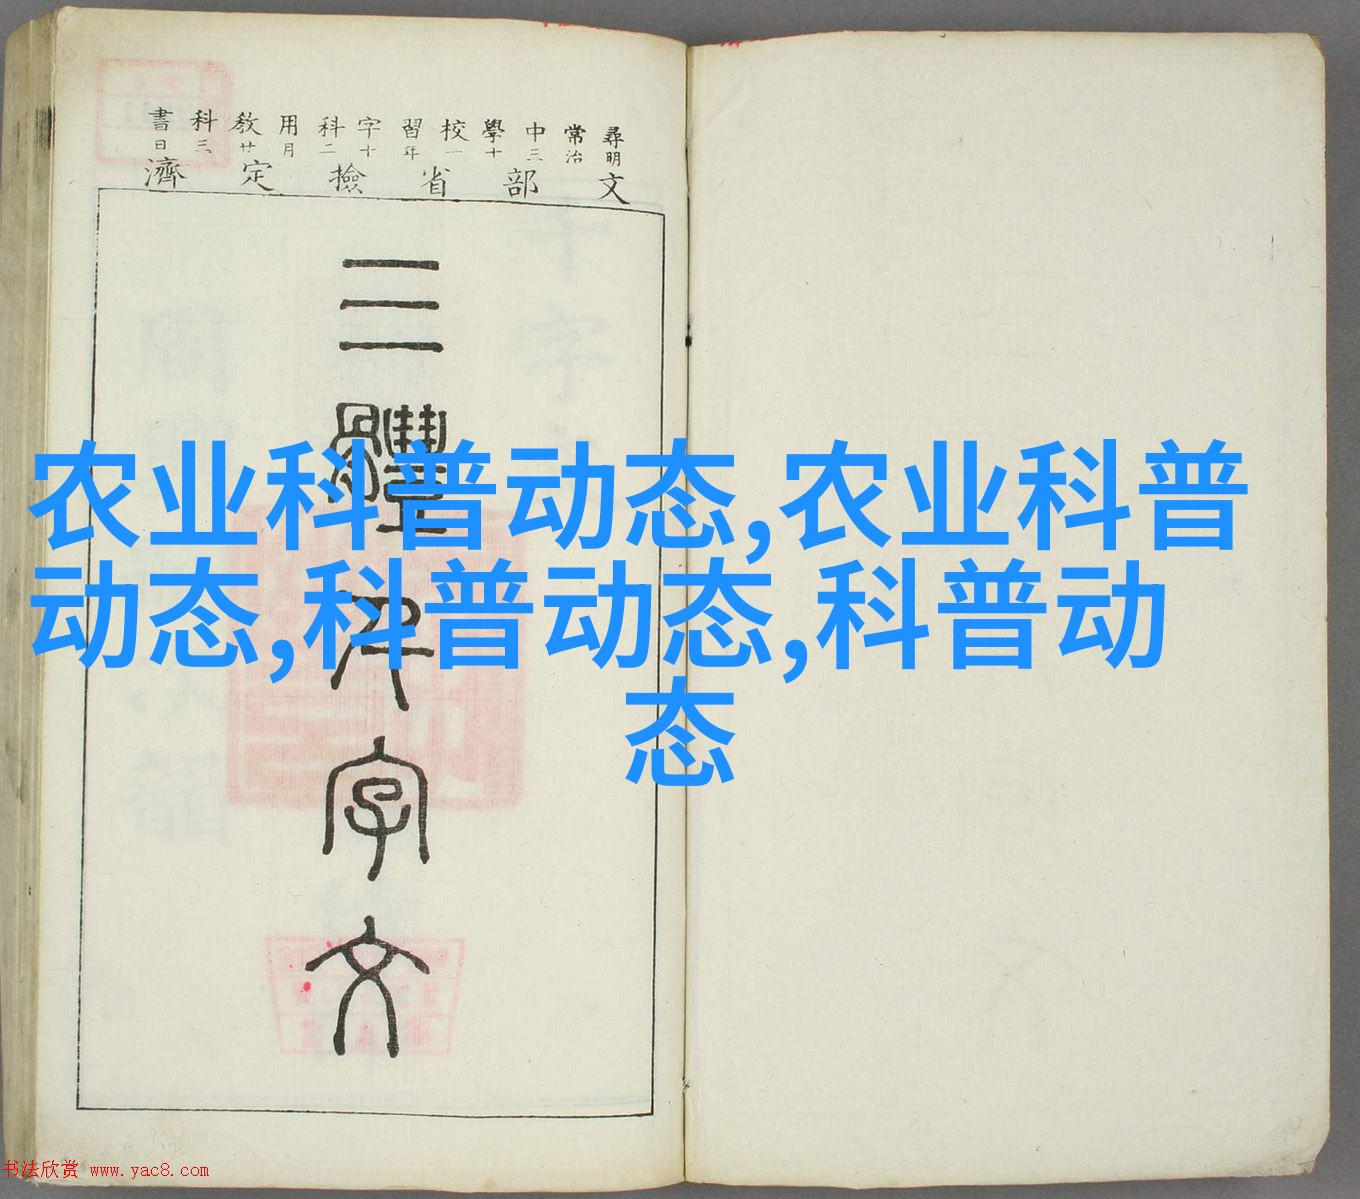 尋常中學校習字科用教科書
明治三十一年十二月廿三日
文部省撿定濟
三體千字文
农业科普动态,农业科普
动态,科普动态,科普动
态
书法欣赏 www.yac8.com